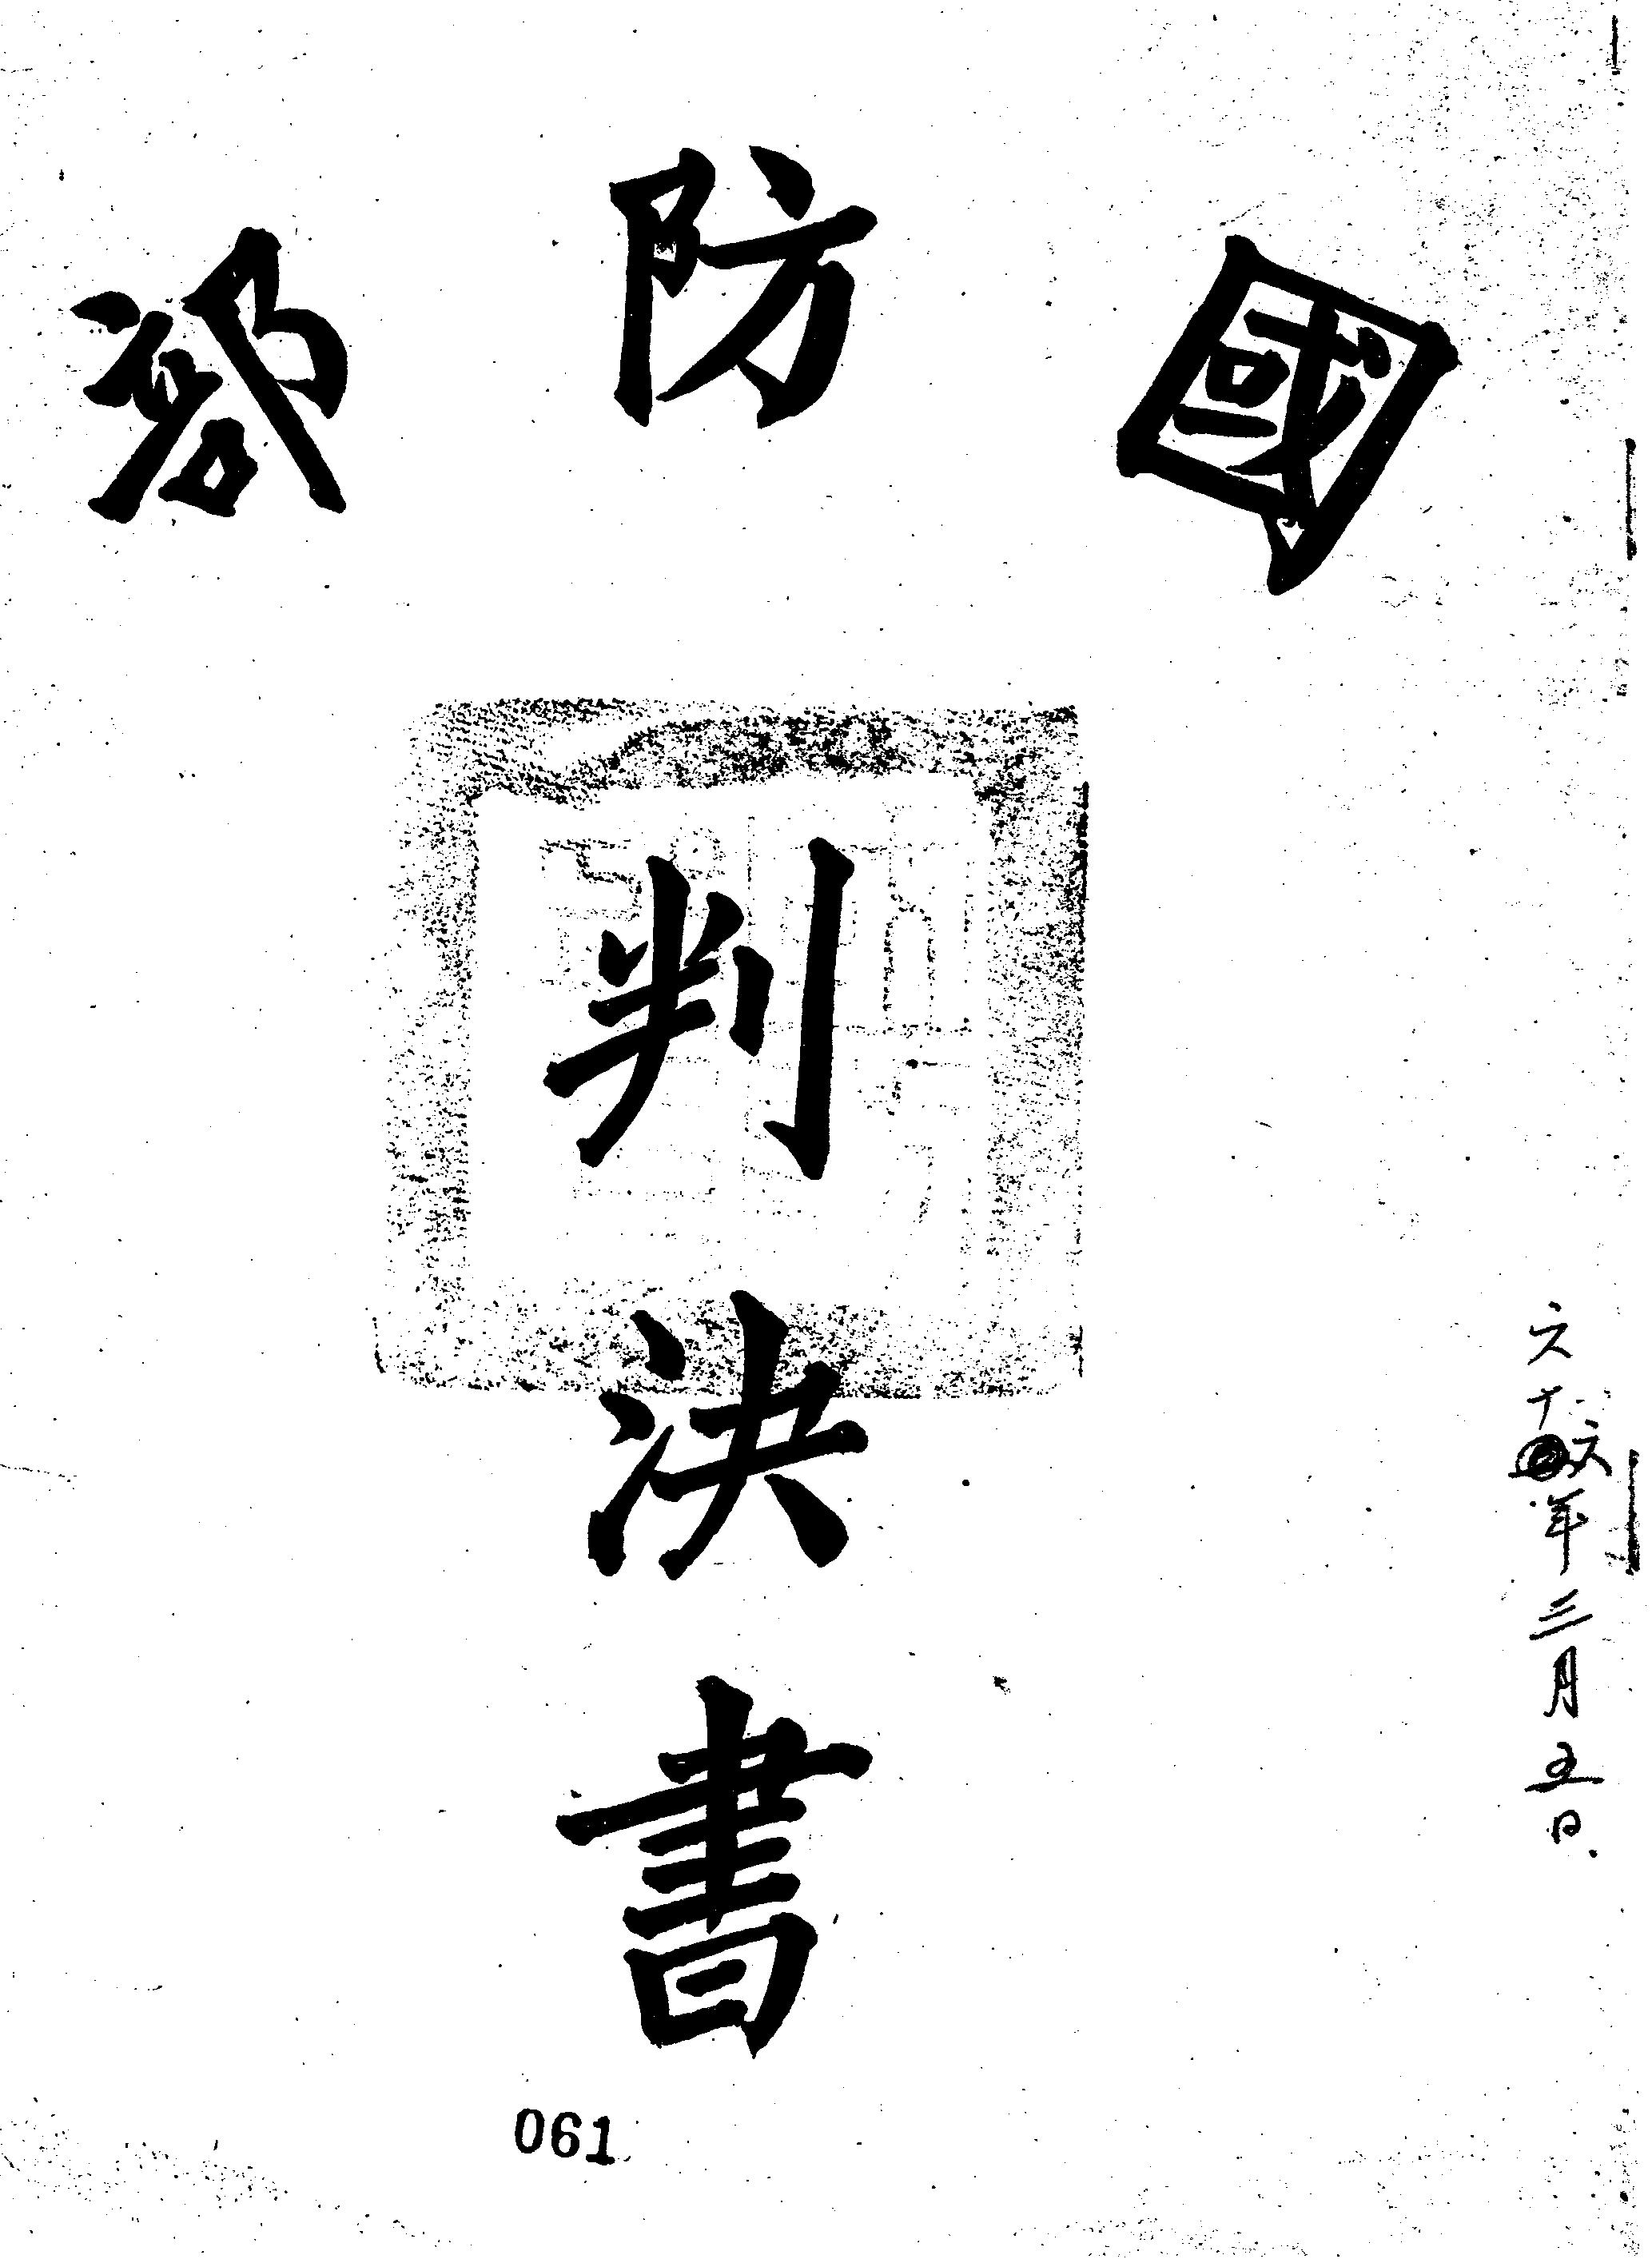 國防部
判決書
六十六年三月五日
061